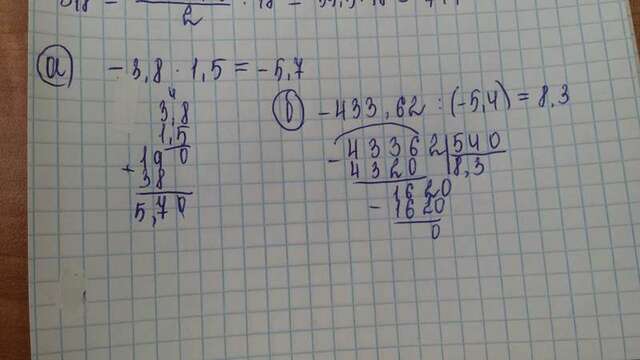 2
а) -3,8 · 1,5 = -5,7
4
3,8
1,5
+ 19 0
38
5,70
б) -433,62 : (-5,4) = 8,3
- 43362 | 540
4320 | 8,3
1620
- 1620
0